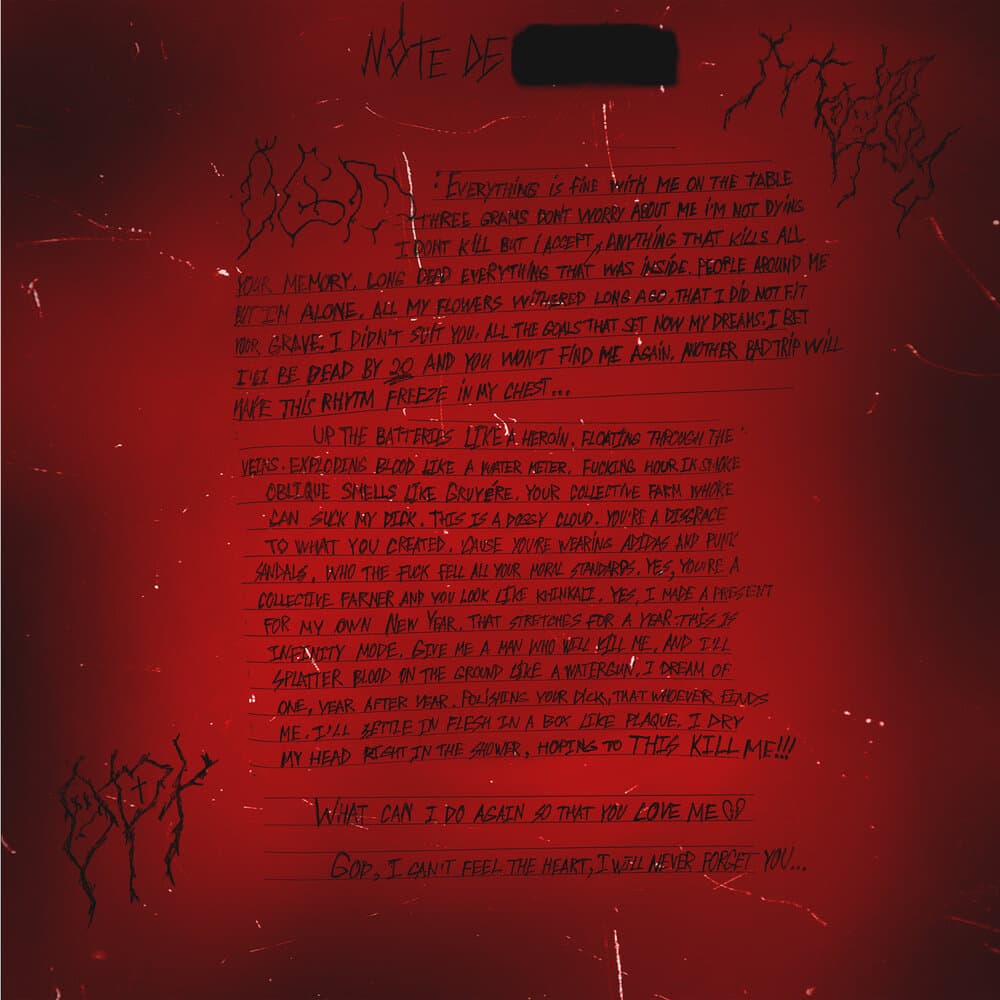 NOTE DE
: EVERYTHING IS FINE WITH ME ON THE TABLE
THREE GRAMS DON'T WORRY ABOUT ME I'M NOT DYING
I DONT KILL BUT I ACCEPT, ANYTHING THAT KILLS ALL
YOUR MEMORY. LONG DEAD EVERYTHING THAT WAS INSIDE. PEOPLE AROUND ME
BUT I'M ALONE, ALL MY FLOWERS WITHERED LONG AGO. THAT I DID NOT FIT
YOUR GRAVE. I DIDN'T SUIT YOU. ALL THE GOALS THAT SET NOW MY DREAMS. I BET
I'LL BE DEAD BY 20 AND YOU WON'T FIND ME AGAIN. ANOTHER BADTRIP WILL
MAKE THIS RHYTM FREEZE IN MY CHEST...
UP THE BATTERIES LIKE A HEROIN. FLOATING THROUGH THE
VEINS. EXPLODING BLOOD LIKE A WATER METER. FUCKING HOUR IN SMOKE
OBLIQUE SMELLS LIKE GRUYÉRE. YOUR COLLECTIVE FARM WHORE
CAN SUCK MY DICK. THIS IS A DOGGY CLOUD. YOU'RE A DISGRACE
TO WHAT YOU CREATED. CAUSE YOU'RE WEARING ADIDAS AND PUNK
SANDALS. WHO THE FUCK FELL ALL YOUR MORAL STANDARDS. YES, YOU'RE A
COLLECTIVE FARNER AND YOU LOOK LIKE KHINKALI. YES, I MADE A PRESENT
FOR MY OWN NEW YEAR. THAT STRETCHES FOR A YEAR. THIS IS
INFINITY MODE. GIVE ME A MAN WHO WILL KILL ME, AND I'LL
SPLATTER BLOOD ON THE GROUND LIKE A WATERGUN. I DREAM OF
ONE, YEAR AFTER YEAR. POLISHING YOUR DICK, THAT WHOEVER FINDS
ME. I'LL SETTLE IN FLESH IN A BOX LIKE PLAQUE. I DRY
MY HEAD RIGHT IN THE SHOWER, HOPING TO THIS KILL ME!!!
WHAT CAN I DO AGAIN SO THAT YOU LOVE ME
GOD, I CAN'T FEEL THE HEART, I WILL NEVER FORGET YOU...